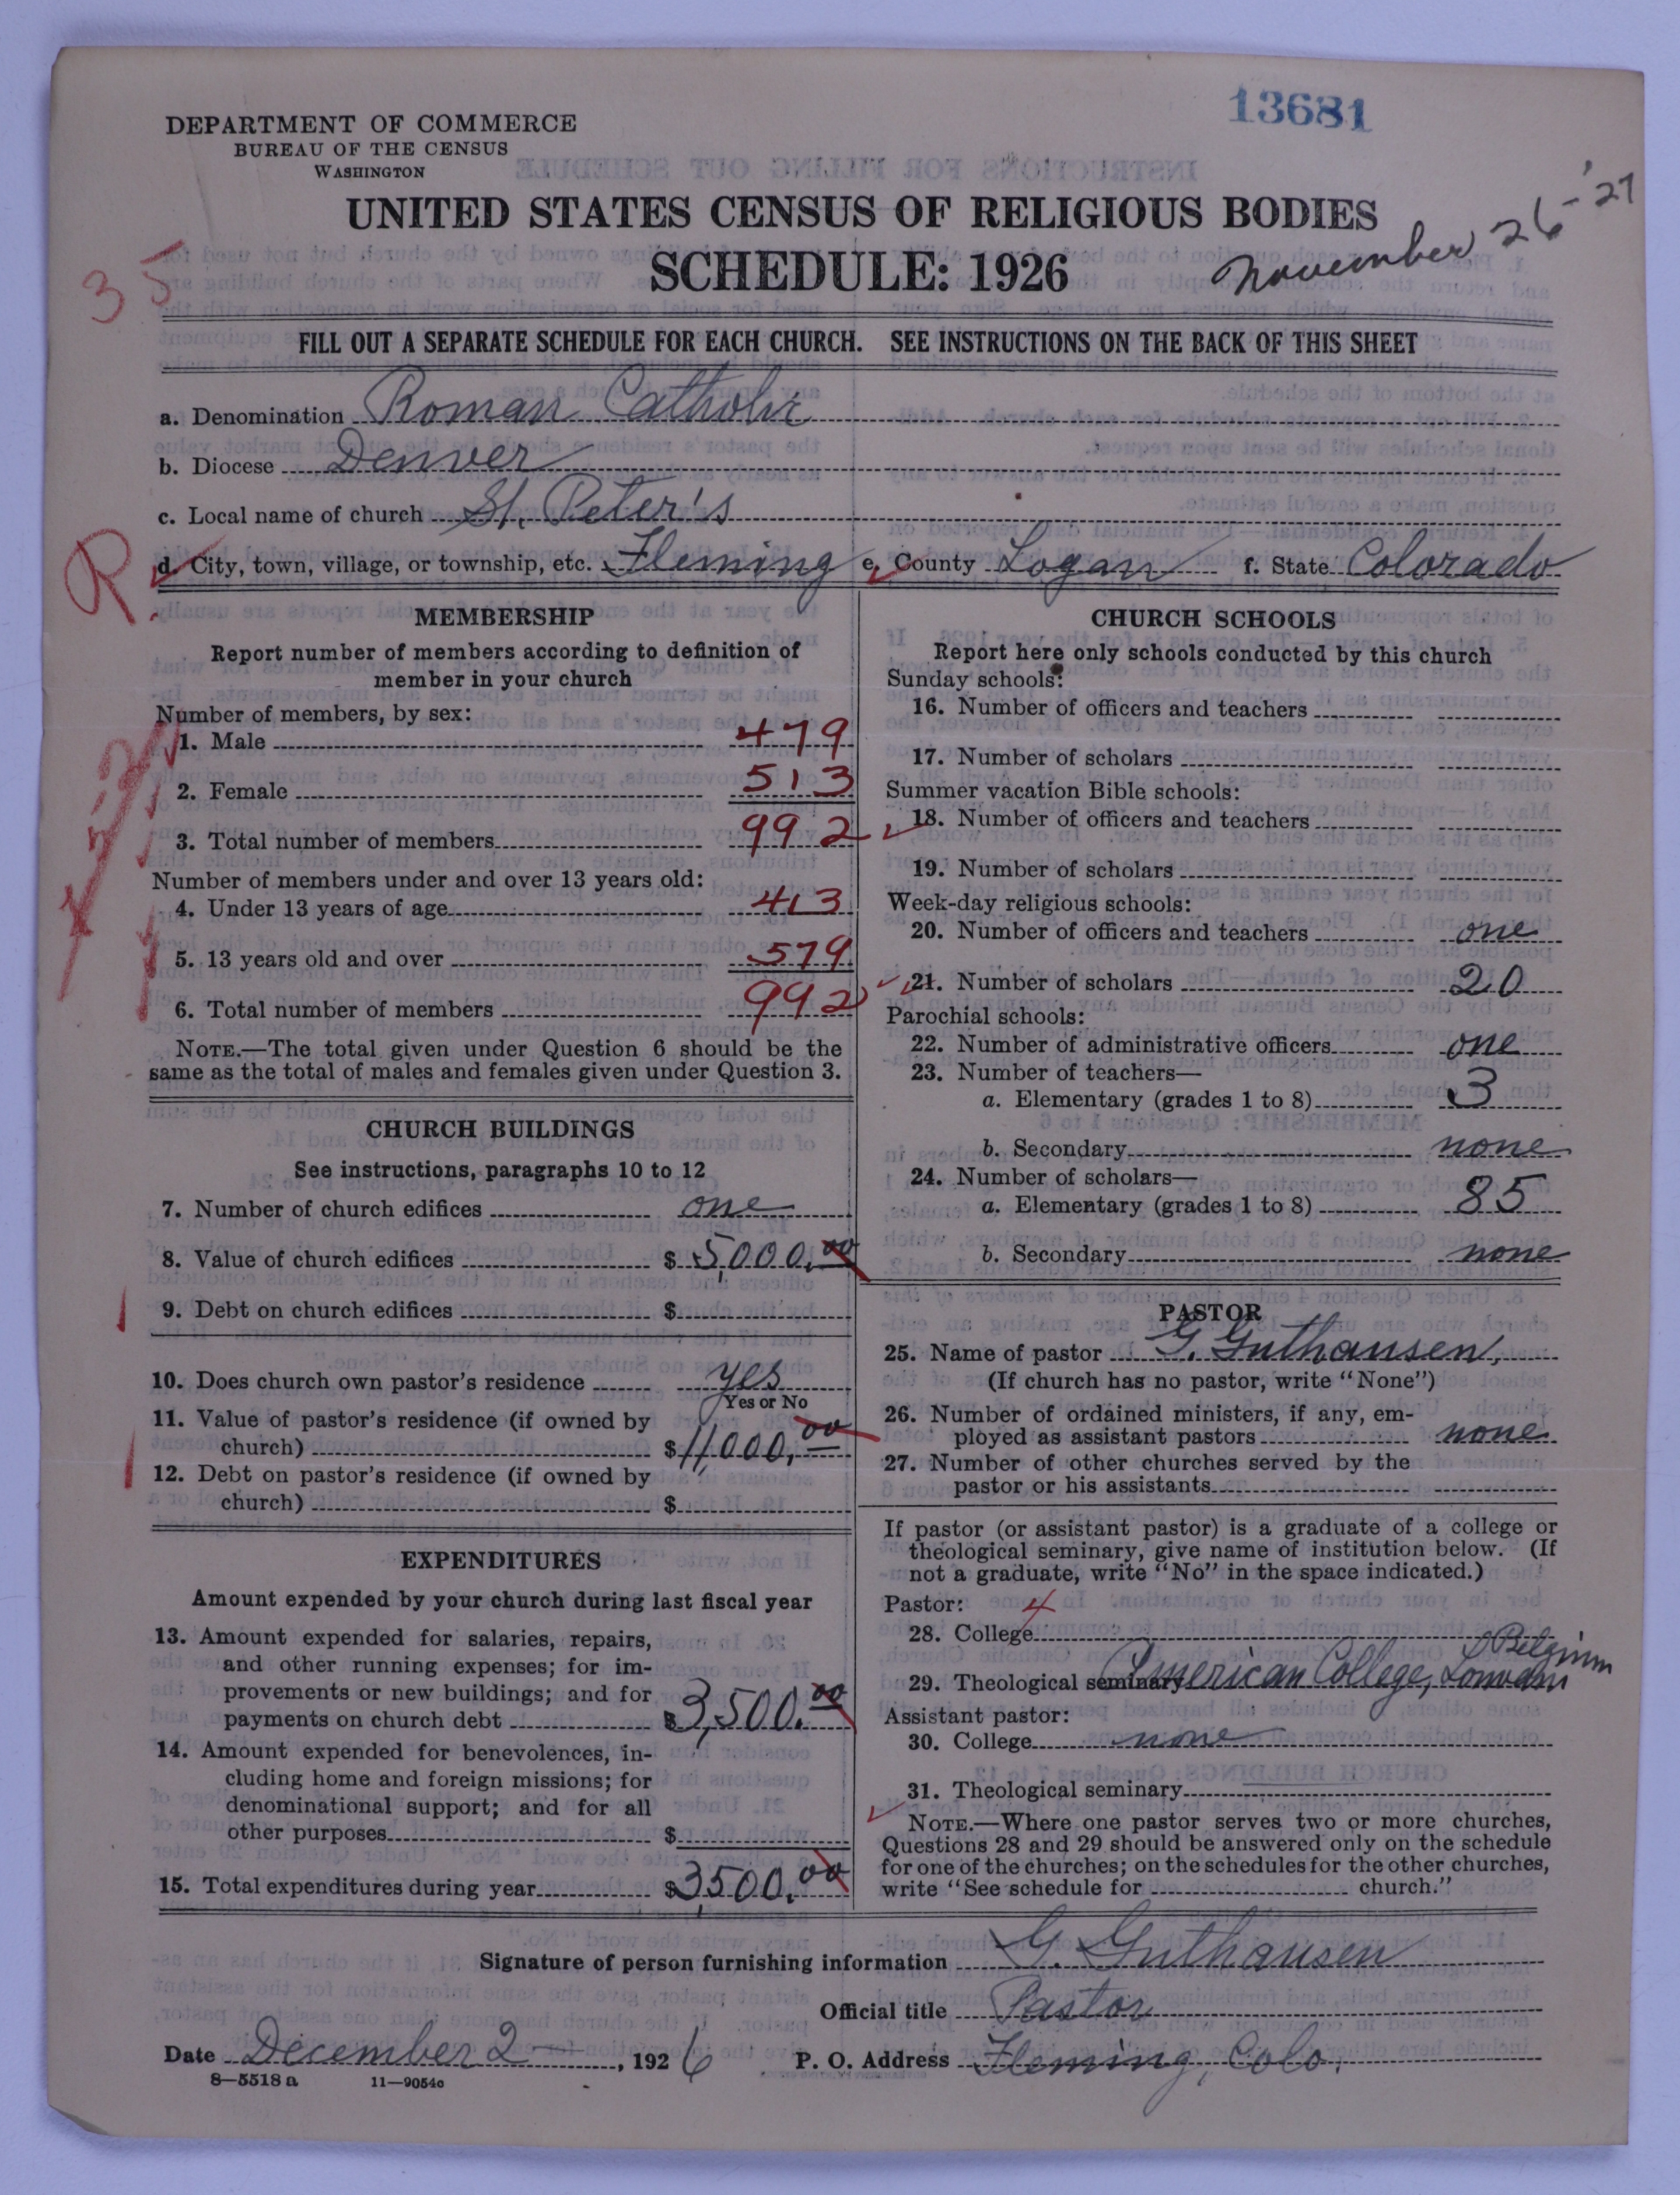 13681
DEPARTMENT OF COMMERCE
BUREAU OF THE CENSUS
WASHINGTON
UNITED STATES CENSUS OF RELIGIOUS BODIES
SCHEDULE: 1926
November 26-'27
35
FILL OUT A SEPARATE SCHEDULE FOR EACH CHURCH. SEE INSTRUCTIONS ON THE BACK OF THIS SHEET
a. Denomination Roman Catholic
b. Diocese Denver
c. Local name of church St. Peter's
R
d. City, town, village, or township, etc. Fleming e. County Logan f. State Colorado
MEMBERSHIP
Report number of members according to definition of
member in your church
Number of members, by sex:
1. Male 479
2. Female 513
3. Total number of members 992
Number of members under and over 13 years old:
4. Under 13 years of age 413
5. 13 years old and over 579
6. Total number of members 992
NOTE.—The total given under Question 6 should be the
same as the total of males and females given under Question 3.
CHURCH BUILDINGS
See instructions, paragraphs 10 to 12
7. Number of church edifices one
8. Value of church edifices $ 5,000.00
9. Debt on church edifices $
10. Does church own pastor's residence yes
Yes or No
11. Value of pastor's residence (if owned by
church) $ 11,000.00
12. Debt on pastor's residence (if owned by
church) $
EXPENDITURES
Amount expended by your church during last fiscal year
13. Amount expended for salaries, repairs,
and other running expenses; for im-
provements or new buildings; and for
payments on church debt $ 3,500.00
14. Amount expended for benevolences, in-
cluding home and foreign missions; for
denominational support; and for all
other purposes $
15. Total expenditures during year $ 3,500.00
CHURCH SCHOOLS
Report here only schools conducted by this church
Sunday schools:
16. Number of officers and teachers
17. Number of scholars
Summer vacation Bible schools:
18. Number of officers and teachers
19. Number of scholars
Week-day religious schools:
20. Number of officers and teachers one
21. Number of scholars 20
Parochial schools:
22. Number of administrative officers one
23. Number of teachers—
a. Elementary (grades 1 to 8) 3
b. Secondary none
24. Number of scholars—
a. Elementary (grades 1 to 8) 85
b. Secondary none
PASTOR
25. Name of pastor G. Guthausen,
(If church has no pastor, write "None")
26. Number of ordained ministers, if any, em-
ployed as assistant pastors none
27. Number of other churches served by the
pastor or his assistants
If pastor (or assistant pastor) is a graduate of a college or
theological seminary, give name of institution below. (If
not a graduate, write "No" in the space indicated.)
Pastor: 4
28. College
29. Theological seminary American College, Louvain Belgium
Assistant pastor:
30. College none
31. Theological seminary
NOTE.—Where one pastor serves two or more churches,
Questions 28 and 29 should be answered only on the schedule
for one of the churches; on the schedules for the other churches,
write "See schedule for church."
Signature of person furnishing information G. Guthausen
Official title Pastor
Date December 2, 1926 P. O. Address Fleming, Colo.
8—5518 a 11—9054c